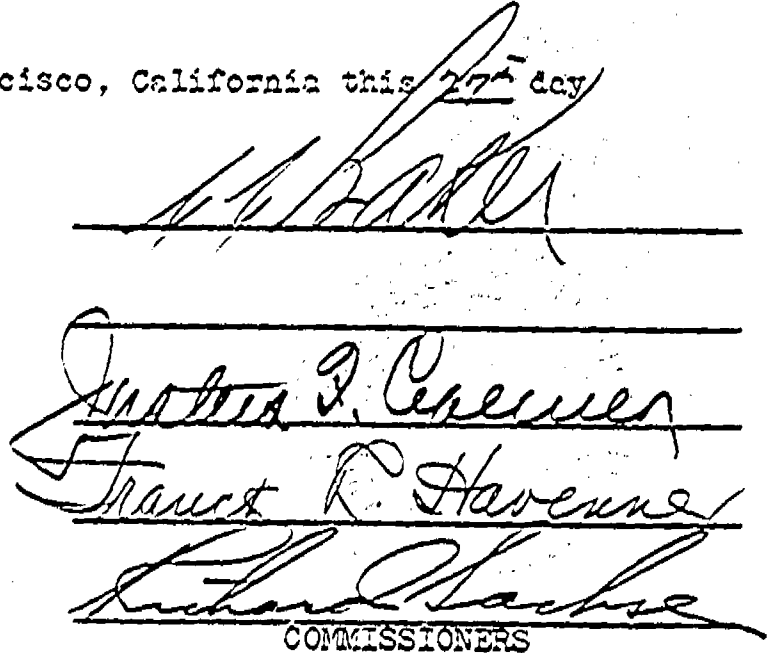 cisco, California this 27th day
Baker
Justus F. Craemer
Franck R. Havenner
Richard Sachse
COMMISSIONERS